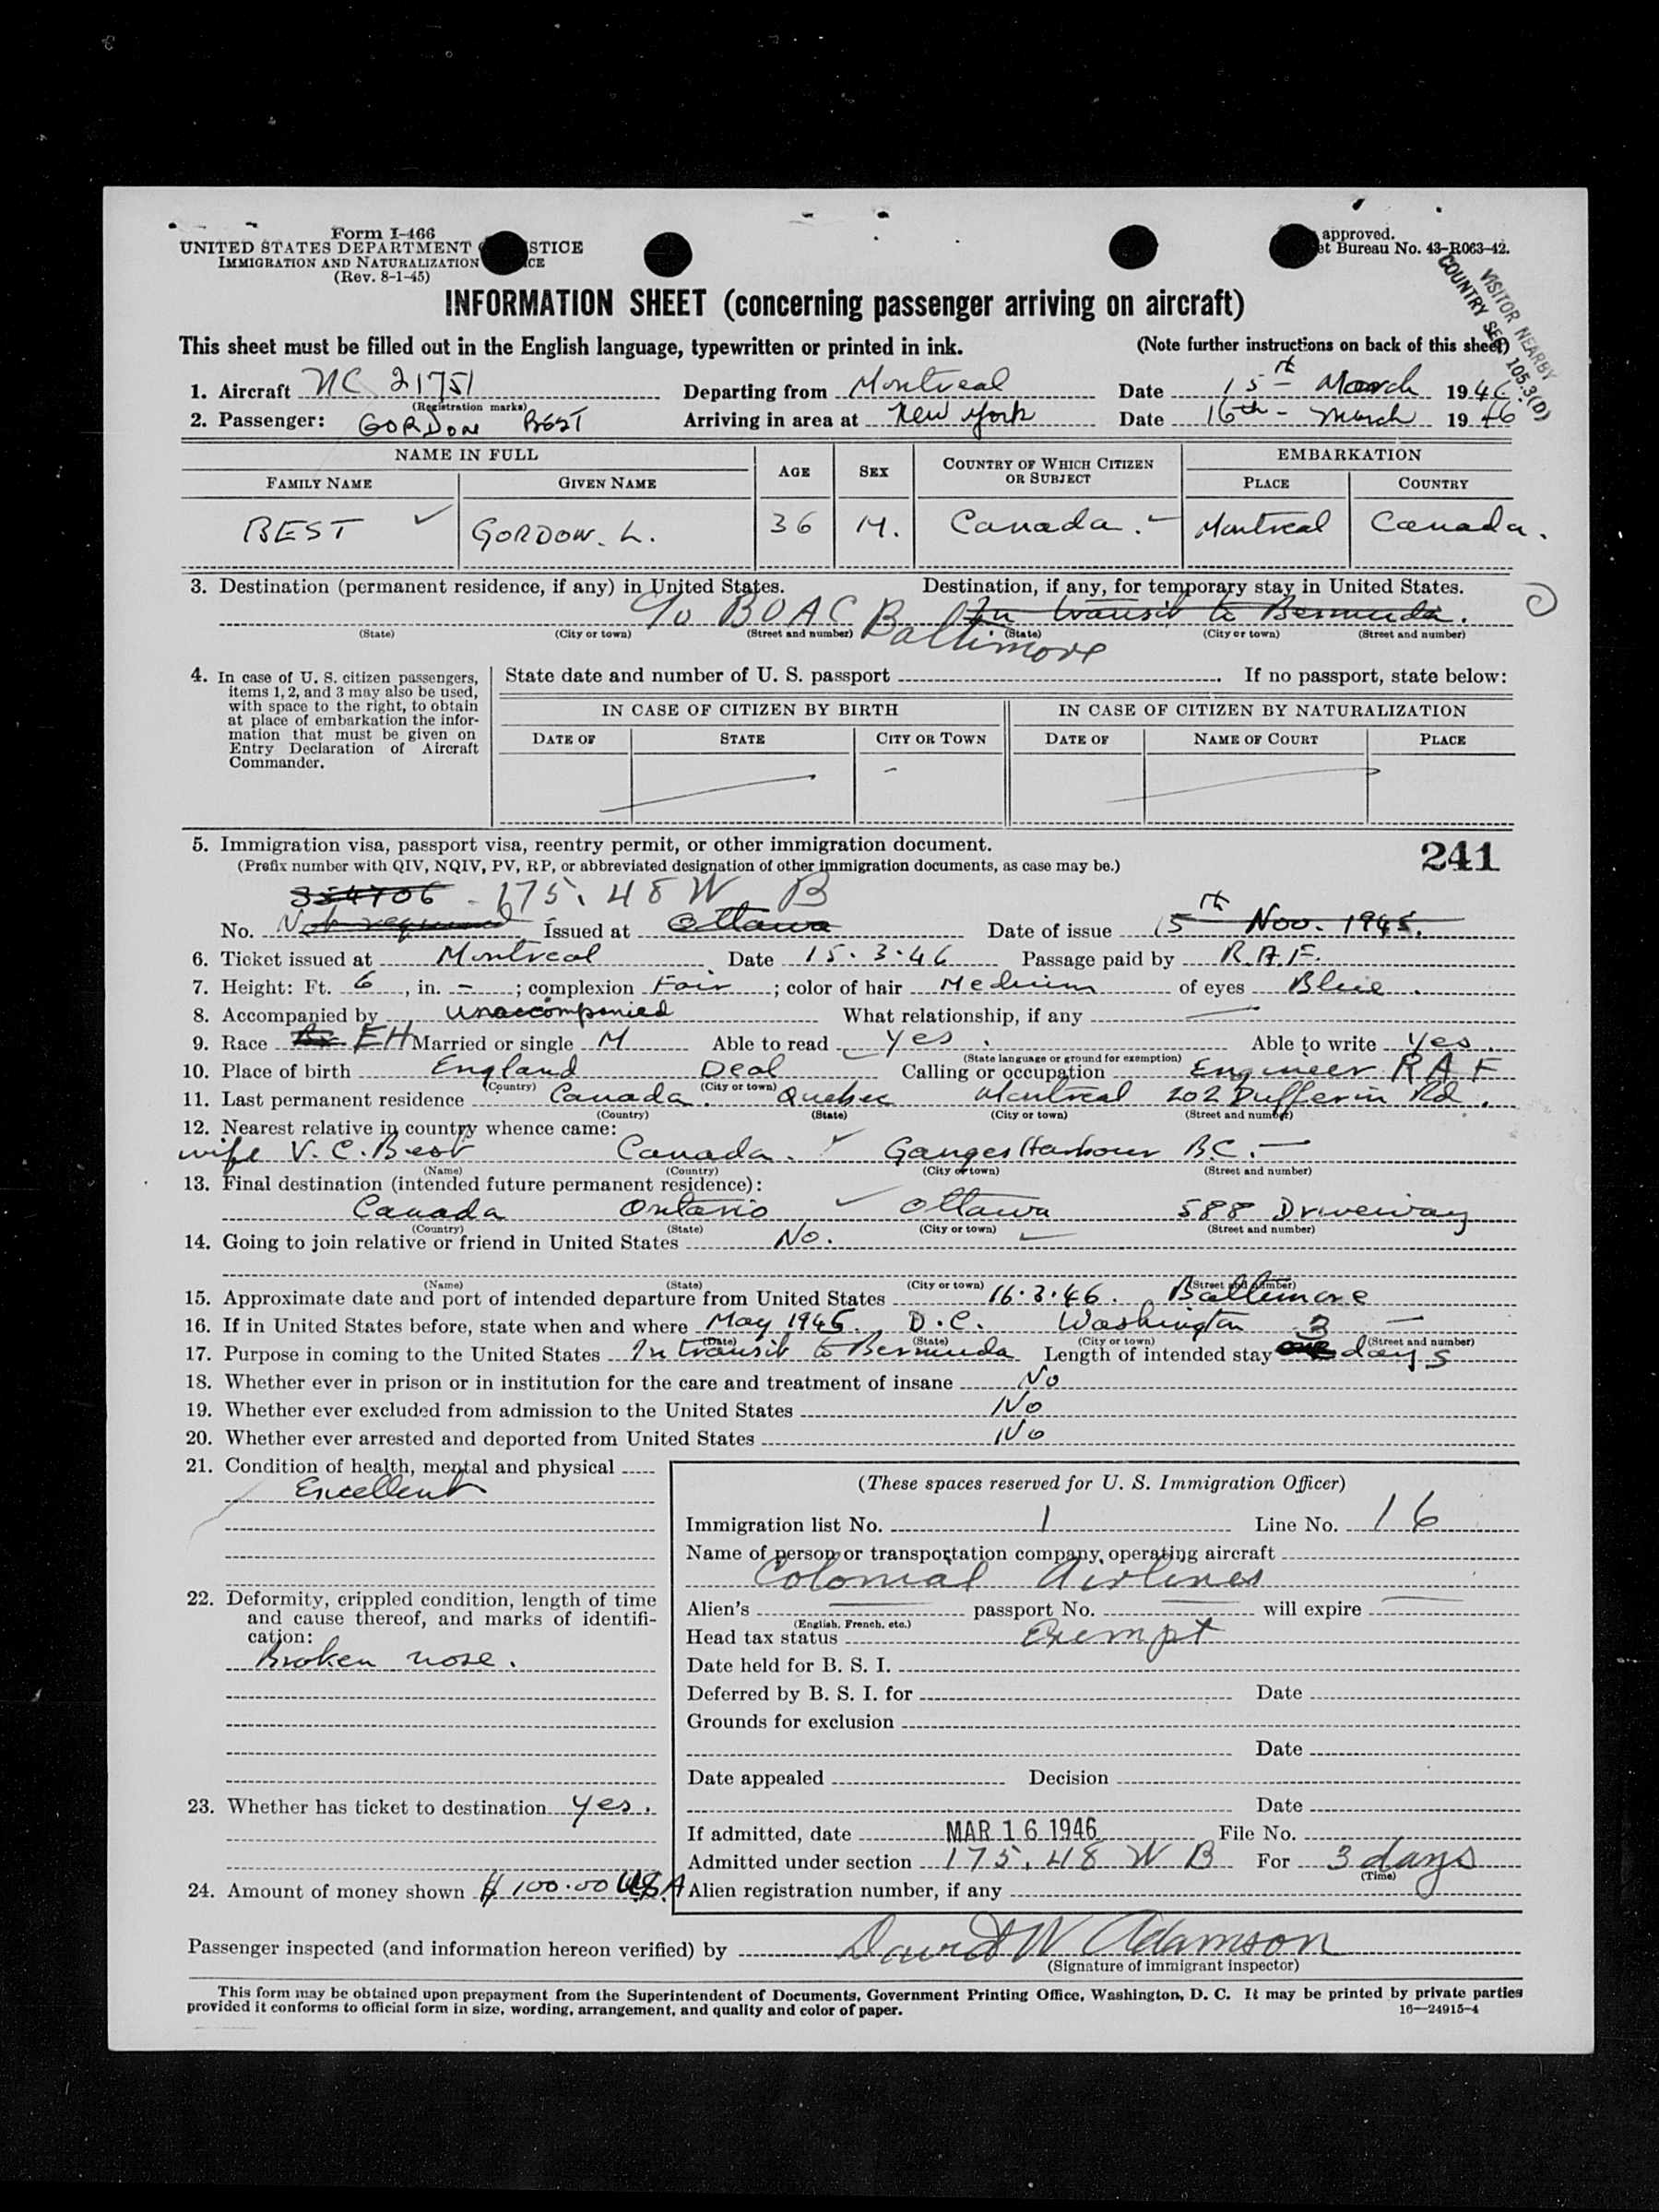 Form I-466
UNITED STATES DEPARTMENT STICE
IMMIGRATION AND NATURALIZATION CE
(Rev. 8-1-45)
approved.
et Bureau No. 43-R063-42.
VISITOR NEARBY
COUNTRY SEC 105.3(D)
INFORMATION SHEET (concerning passenger arriving on aircraft)
This sheet must be filled out in the English language, typewritten or printed in ink. (Note further instructions on back of this sheet)
1. Aircraft NC 21751 Departing from Montreal Date 15th March 1946.
(Registration marks)
2. Passenger: GORDON BEST Arriving in area at New York Date 16th - March 1946
NAME IN FULL AGE SEX COUNTRY OF WHICH CITIZEN OR SUBJECT EMBARKATION
FAMILY NAME GIVEN NAME PLACE COUNTRY
BEST GORDON. L. 36 M. Canada. Montreal Canada.
3. Destination (permanent residence, if any) in United States. Destination, if any, for temporary stay in United States.
c/o BOAC Baltimore In transit to Bermuda.
(State) (City or town) (Street and number) (State) (City or town) (Street and number)
4. In case of U. S. citizen passengers, items 1, 2, and 3 may also be used, with space to the right, to obtain at place of embarkation the information that must be given on Entry Declaration of Aircraft Commander.
State date and number of U. S. passport . If no passport, state below:
IN CASE OF CITIZEN BY BIRTH IN CASE OF CITIZEN BY NATURALIZATION
DATE OF STATE CITY OR TOWN DATE OF NAME OF COURT PLACE
5. Immigration visa, passport visa, reentry permit, or other immigration document.
(Prefix number with QIV, NQIV, PV, RP, or abbreviated designation of other immigration documents, as case may be.)
241
354706 - 175.48 W B
No. Not required Issued at Ottawa Date of issue 15th Nov. 1945.
6. Ticket issued at Montreal Date 15.3.46 Passage paid by R.A.F.
7. Height: Ft. 6, in. - ; complexion Fair ; color of hair Medium of eyes Blue.
8. Accompanied by unaccompanied What relationship, if any
9. Race EH Married or single M Able to read yes. Able to write yes.
(State language or ground for exemption)
10. Place of birth England Deal Calling or occupation Engineer RAF
(Country) (City or town)
11. Last permanent residence Canada. Quebec Montreal 202 Dufferin Rd.
(Country) (State) (City or town) (Street and number)
12. Nearest relative in country whence came:
wife V. C. Best Canada. Ganges Harbour B.C. —
(Name) (Country) (City or town) (Street and number)
13. Final destination (intended future permanent residence):
Canada Ontario Ottawa 588 Driveway
(Country) (State) (City or town) (Street and number)
14. Going to join relative or friend in United States No.
(Name) (State) (City or town) (Street and number)
15. Approximate date and port of intended departure from United States 16.3.46. Baltimore
16. If in United States before, state when and where May 1945. D.C. Washington —
(Date) (State) (City or town) (Street and number)
17. Purpose in coming to the United States In transit to Bermuda Length of intended stay one 3 days
18. Whether ever in prison or in institution for the care and treatment of insane No
19. Whether ever excluded from admission to the United States No
20. Whether ever arrested and deported from United States No
21. Condition of health, mental and physical
Excellent
22. Deformity, crippled condition, length of time and cause thereof, and marks of identification:
Broken nose.
23. Whether has ticket to destination yes.
24. Amount of money shown $100.00 USA
(These spaces reserved for U. S. Immigration Officer)
Immigration list No. 1 Line No. 16
Name of person or transportation company operating aircraft
Colonial Airlines
Alien's passport No. will expire
(English, French, etc.)
Head tax status Exempt
Date held for B. S. I.
Deferred by B. S. I. for Date
Grounds for exclusion
Date
Date appealed Decision
Date
If admitted, date MAR 16 1946 File No.
Admitted under section 175.48 W B For 3 days
(Time)
Alien registration number, if any
Passenger inspected (and information hereon verified) by David W Adamson
(Signature of immigrant inspector)
This form may be obtained upon prepayment from the Superintendent of Documents, Government Printing Office, Washington, D. C. It may be printed by private parties
provided it conforms to official form in size, wording, arrangement, and quality and color of paper. 16—24915-4